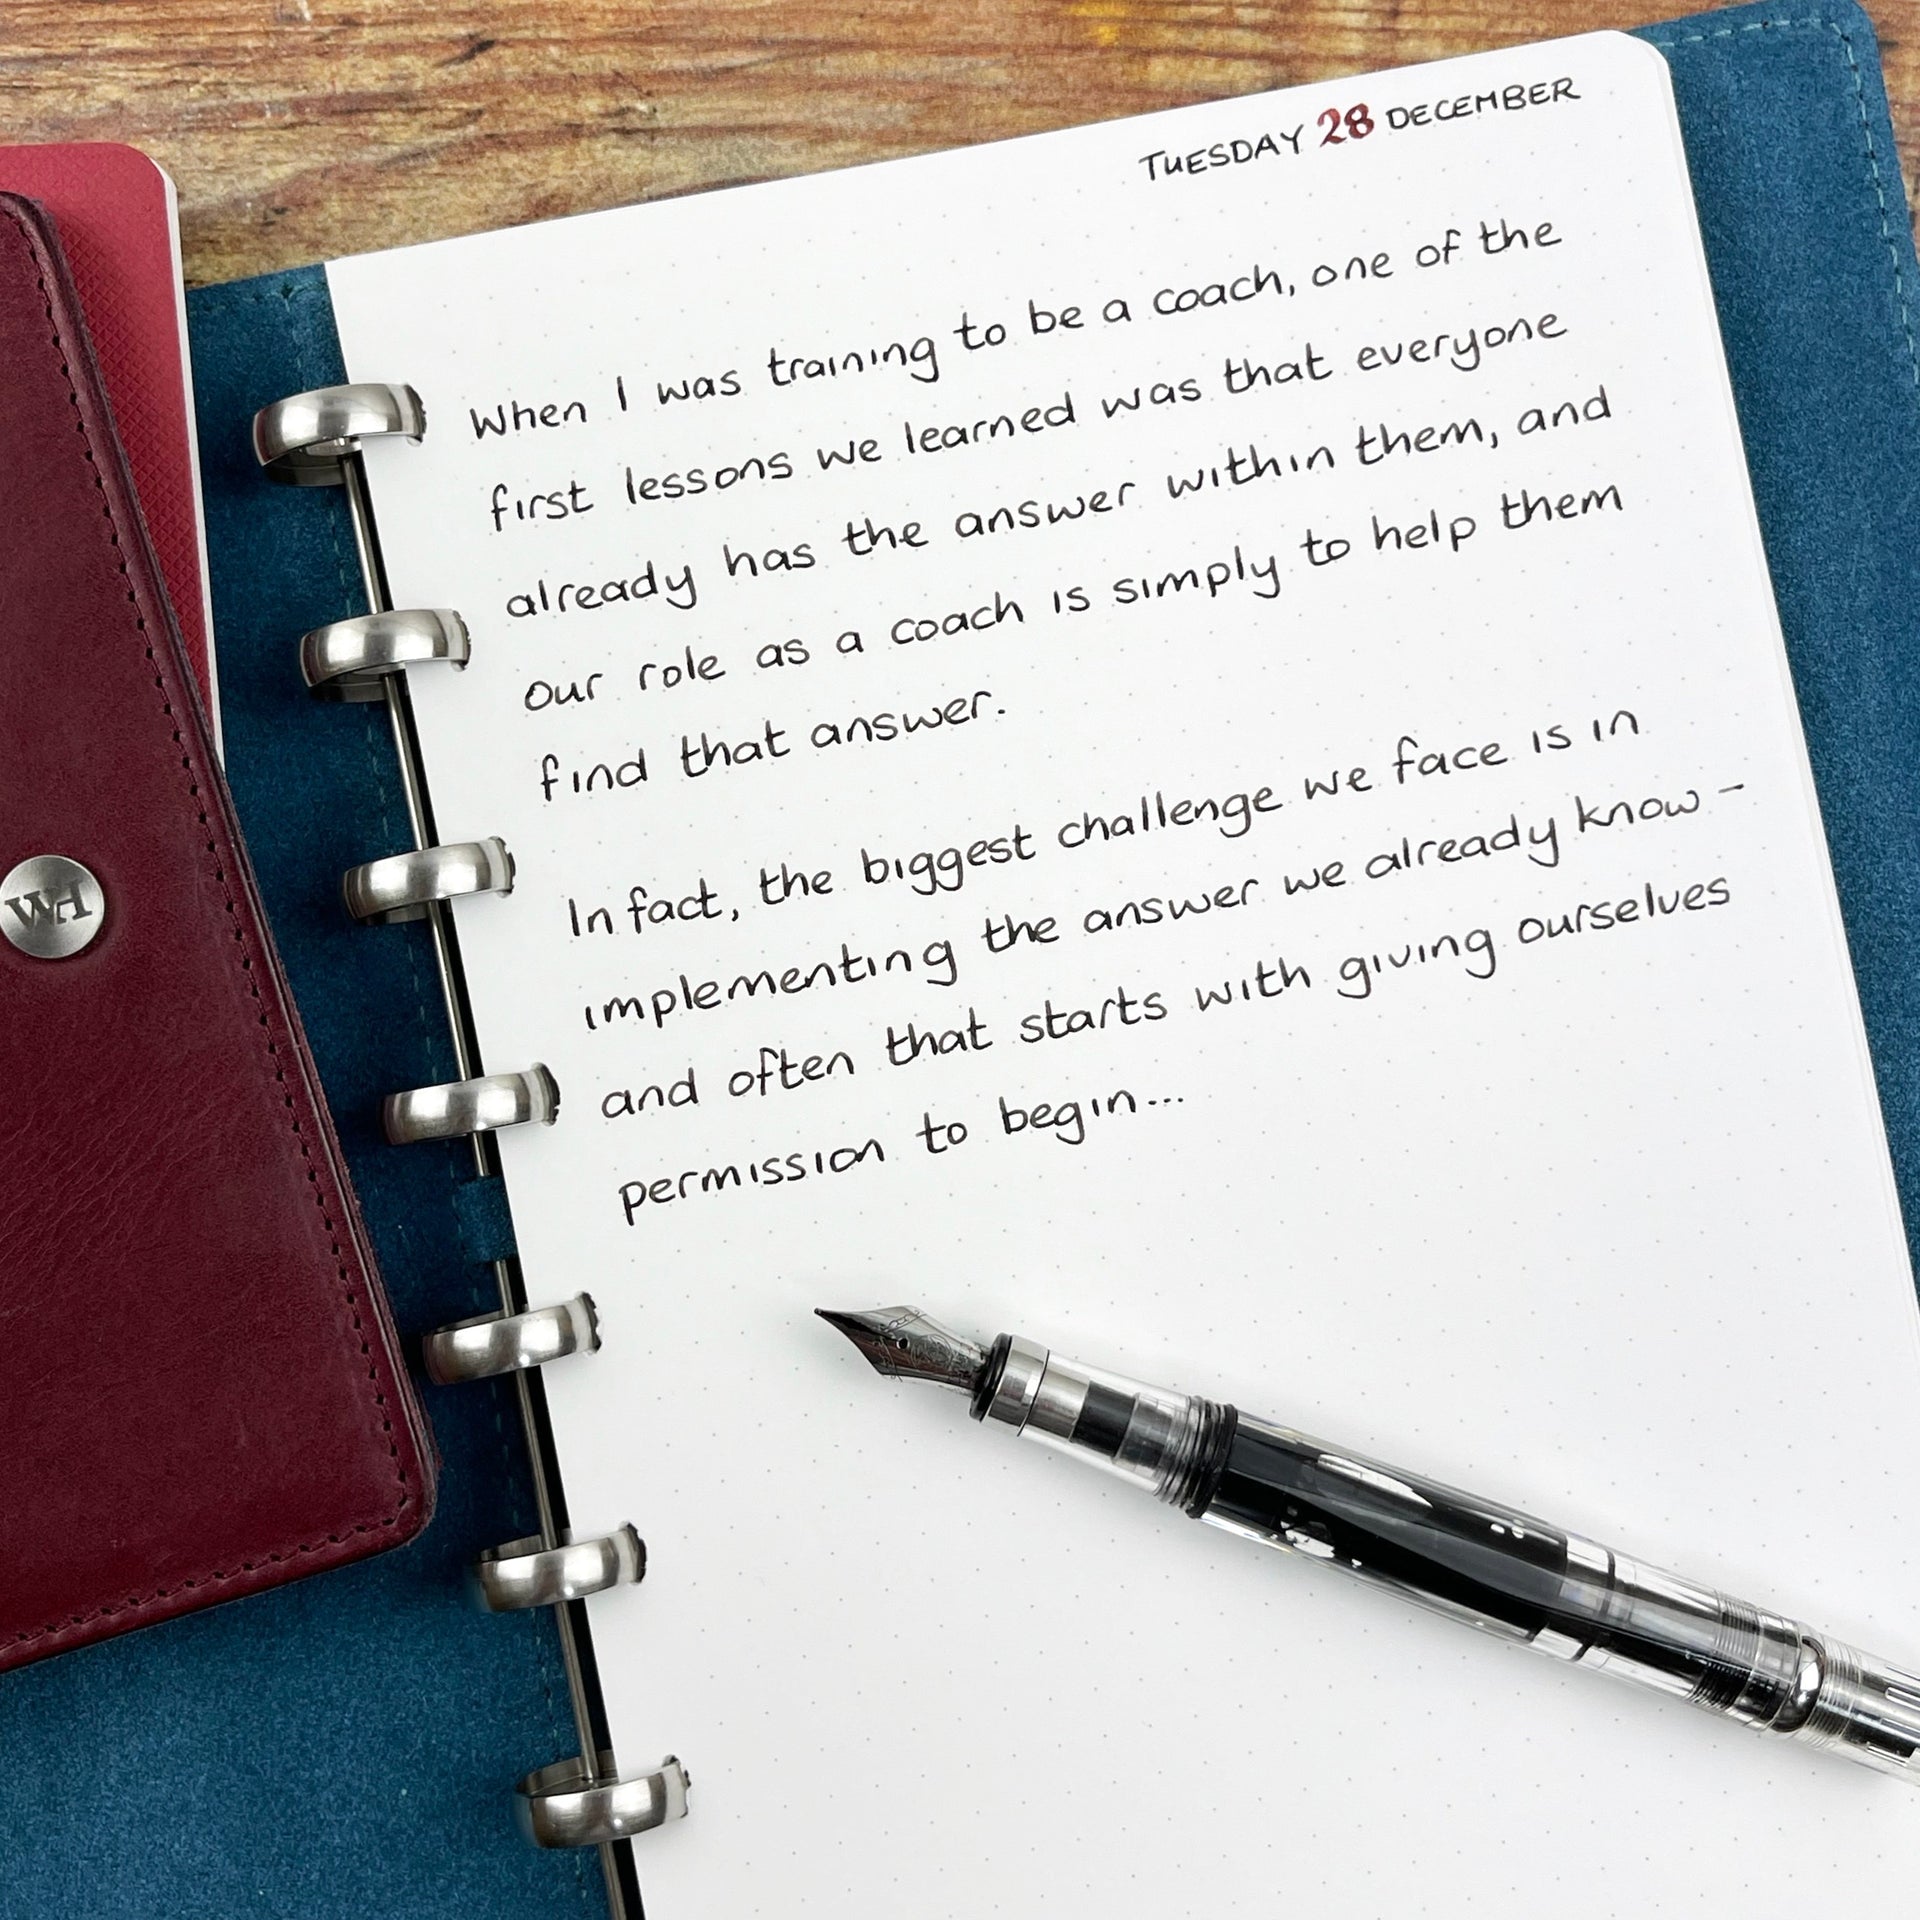 TUESDAY 28 DECEMBER
When I was training to be a coach, one of the
first lessons we learned was that everyone
already has the answer within them, and
our role as a coach is simply to help them
find that answer.
In fact, the biggest challenge we face is in
implementing the answer we already know -
and often that starts with giving ourselves
permission to begin...
WH